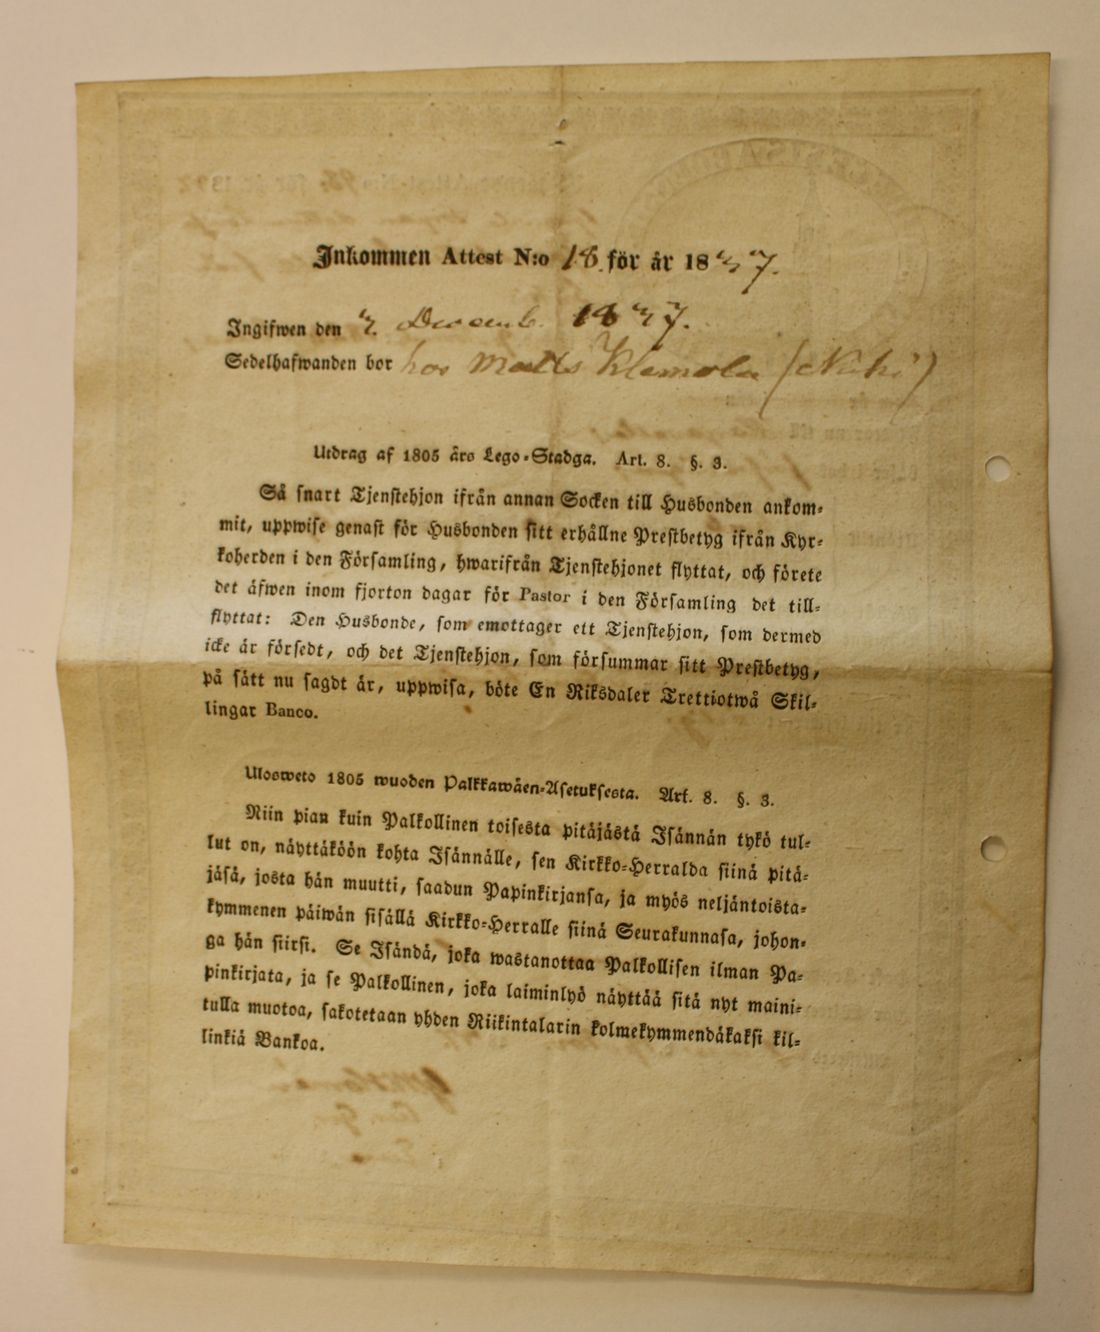 Inkommen Attest N:o 18. för år 1847.
Ingifwen den 4. Decemb. 1847.
Sedelhafwanden bor hos Matts Klemola (Niki)
Utdrag af 1805 års Lego-Stadga. Art. 8. §. 3.
Så snart Tjenstehjon ifrån annan Socken till Husbonden ankom-
mit, uppwise genast för Husbonden sitt erhållne Prestbetyg ifrån Kyr-
koherden i den Församling, hwarifrån Tjenstehjonet flyttat, och förete
det äfwen inom fjorton dagar för Pastor i den Församling det till-
flyttat: Den Husbonde, som emottager ett Tjenstehjon, som dermed
icke är försedt, och det Tjenstehjon, som försummar sitt Prestbetyg,
på sätt nu sagdt är, uppwisa, böte En Riksdaler Trettiotwå Skil-
lingar Banco.
Ulosweto 1805 wuoden Palkkawäen-Asetuksesta. Art. 8. §. 3.
Niin pian kuin Palkollinen toisesta pitäjästä Isännän tykö tul-
lut on, näyttäköön kohta Isännälle, sen Kirkko-Herralda siinä pitä-
jäsä, josta hän muutti, saadun Papinkirjansa, ja myös neljäntoista-
kymmenen päiwän sisällä Kirkko-Herralle siinä Seurakunnasa, johon-
ga hän siirsi. Se Isändä, joka wastanottaa Palkollisen ilman Pa-
pinkirjata, ja se Palkollinen, joka laiminlyö näyttää sitä nyt maini-
tulla muotoa, sakotetaan yhden Riikintalarin kolmekymmendäkaksi kil-
linkiä Bankoa.